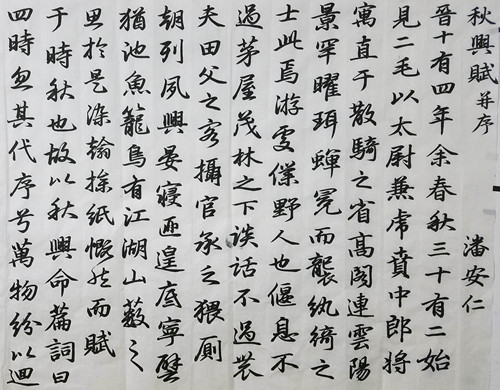 秋興賦并序 潘安仁
晉十有四年余春秋三十有二始
見二毛以太尉兼虎賁中郎將
寓直于散騎之省高閣連雲陽
景罕曜珥蟬冕而襲紈綺之
士此焉游處僕野人也偃息不
過茅屋茂林之下談話不過農
夫田父之客攝官承乏猥厠
朝列夙興晏寢匪遑底寧譬
猶池魚籠鳥有江湖山藪之
思於是染翰操紙慨然而賦
于時秋也故以秋興命篇詞曰
四時忽其代序兮萬物紛以迴